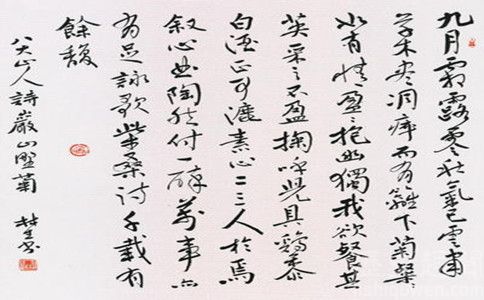 九月霜露零秋氣已雲肅
草木盡凋瘁而有籬下菊粲
有情盈盈抱幽獨我欲餐其
英采之不盈掬呼兒具鷄黍
白酒正可漉素心二三人於焉
叙心曲陶然付一醉萬事亦
足詠歌柴桑詩千載有
餘馥
八大山人詩巖山菊